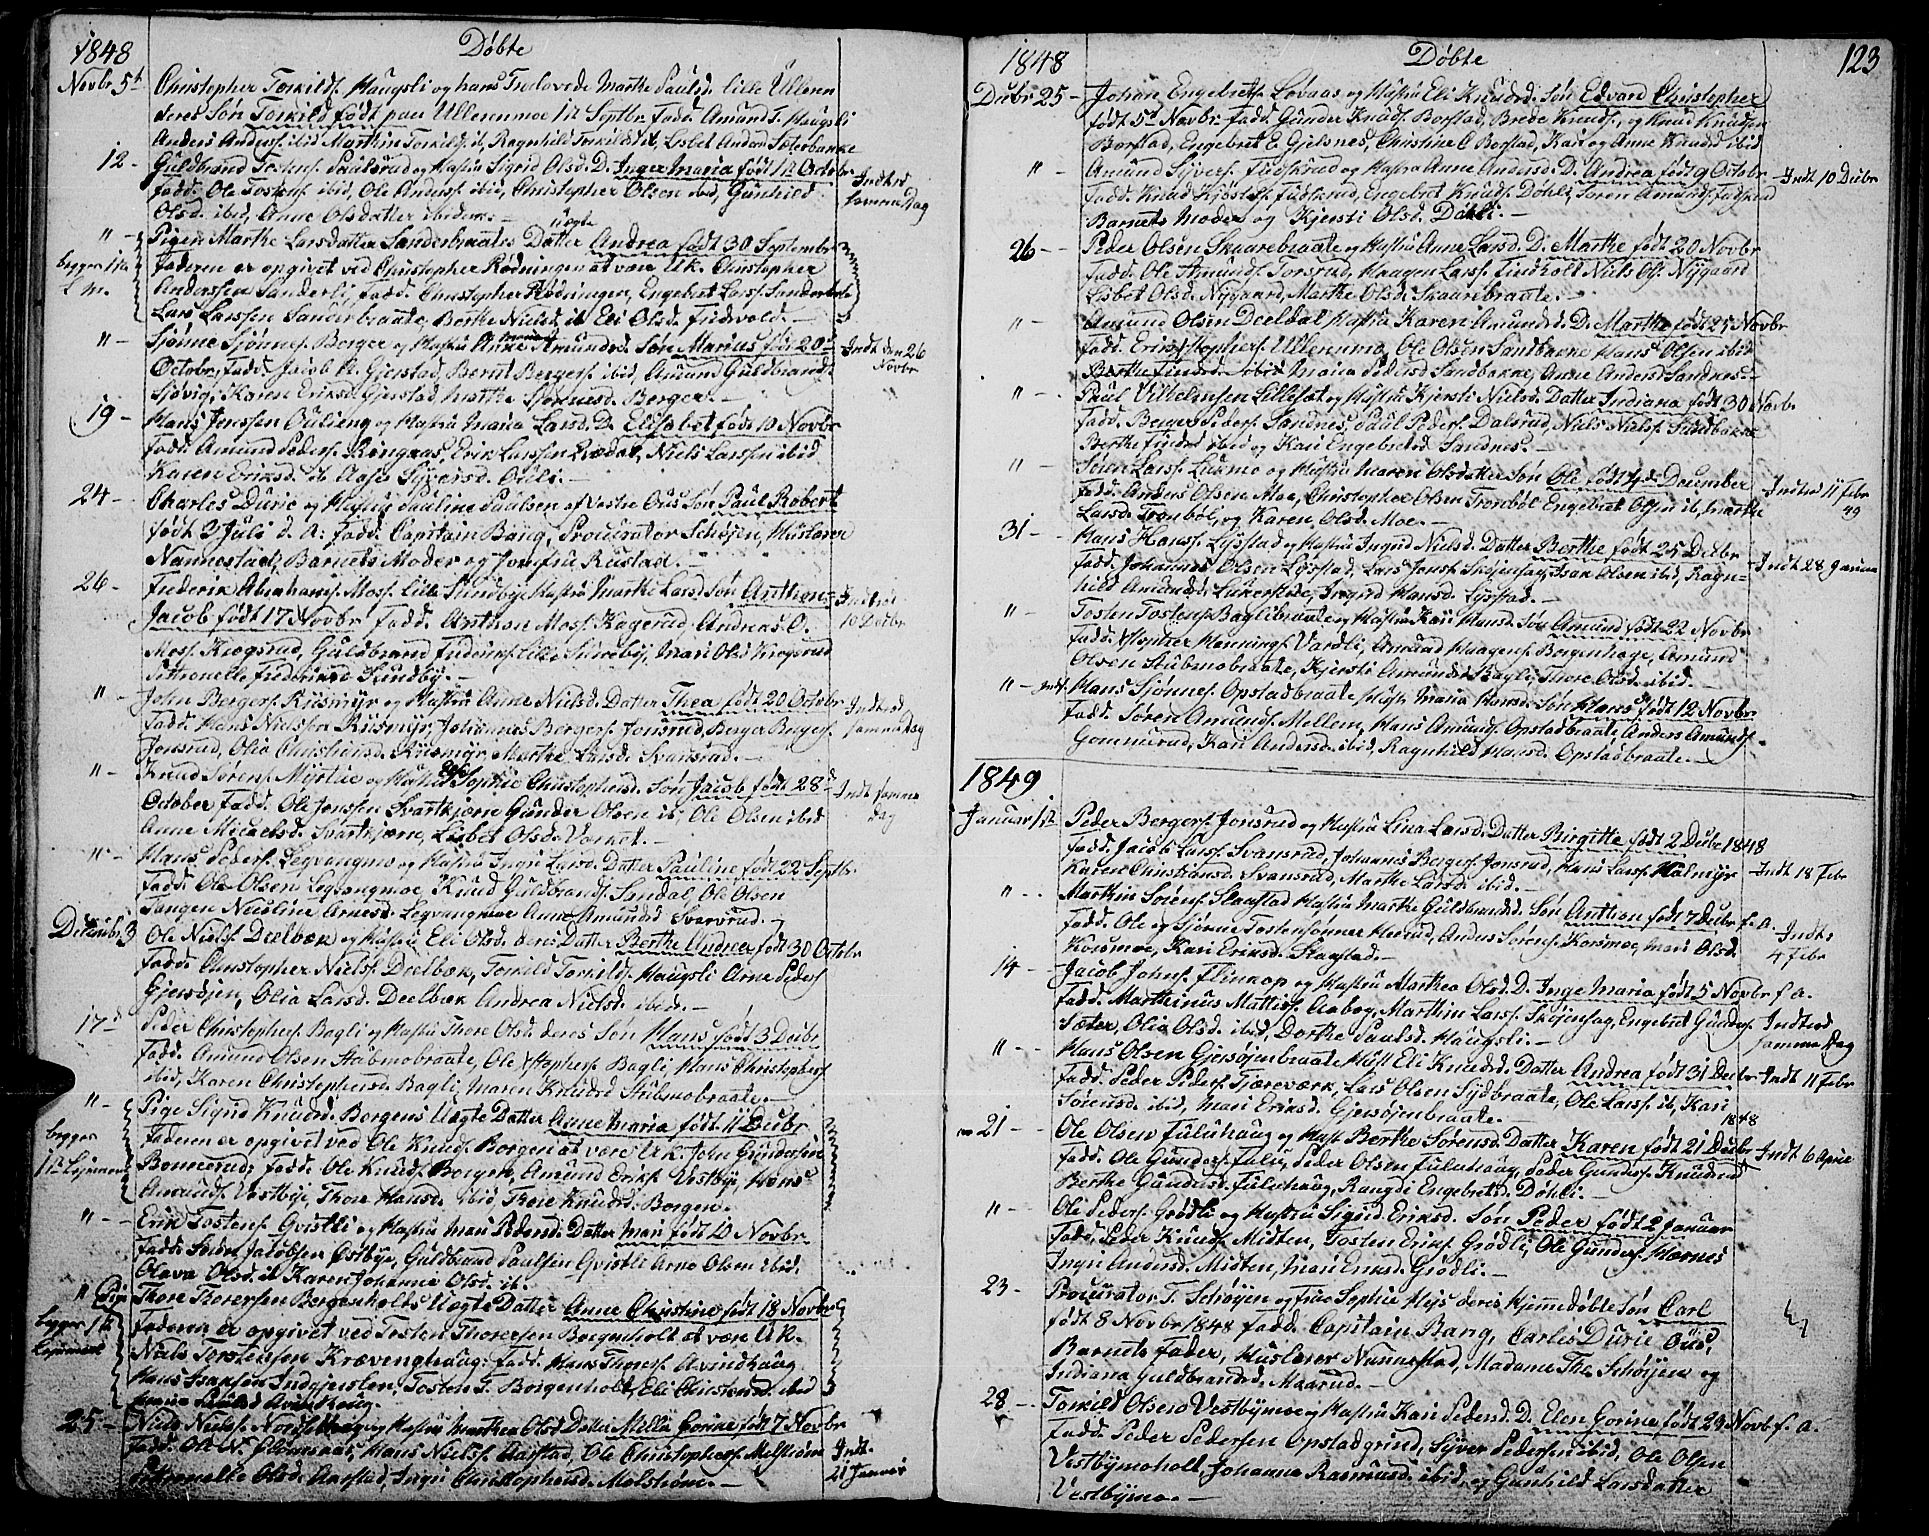 1848
Døbte
Novbr 5t
Christopher Torkilds. Haugsli og hans Trolovede Marthe Paulsd. Lille Ullern
deres Søn Torkild født paa Ullernmoe 12 Septbr. Fadd. Amund T. Haugsli
Anders Anders. ibid Marthin Torkilds. it, Ragnhild Torkildsd it, Lisbet Andersd Sæterbakke
12 -
Guldbrand Tostens. Paulsrud og Hustru Sigrid Olsd. D. Inger Maria født 12 Octobr
Fadd. Ole Tostens ibid, Ole Anders. ibid, Christopher Olsen ibid, Gunhild
Olsd. ibid, Anne Olsdatter ibidem. -
Indtrd samme Dag
" -
Pigen Marthe Larsdatter Sanderbraates uægte Datter Andrea født 30 September
Faderen er opgivet ved Christopher Rødningen at være U.K. Christopher
Anderssen Sanderli, Fadd. Christopher Rødningen, Engebret Lars. Sanderbraate
Lars Larssen Sanderbraate, Berthe Nielsd. it Eli Olsd. Fridvold. -
begges 1ste L.m.
" -
Sjønne Sjønnes. Berger og Hustru Anne Amundsd. Søn Marius født 20de
Octobr, Fadd. Jacob P. Gjerstad, Bernt Bergers. ibid, Amund Guldbrands.
Sjøvig, Karen Eriksd. Gjerstad, Marthe Sjønnesd. Berger. -
Indt den 26 Novbr
19 -
Hans Jenssen Oulieng og Hustru Maria Larsd. D. Elisabet født 10 Novbr
Fadd. Amund Peders. Ringnæs, Erik Larssen, Niels Larssen ibid
Karen Eriksd. it Aase Syversd. Ouli. -
24 -
Charles Durie og Hustru Pauline Paulsen af Vestre Ous Søn Paul Robert
født 3 Juli d. A: Fadd. Capitain Bang, Procurator Schøjen, Huslærer
Nannestad, Barnets Moder og Jomfru Rustad. -
26 -
Frederik Abrahams. Moss. Lille Sundbye Hustru Marthe Larsd. Søn Anthon
Jacob født 17 Novbr Fadd. Anthon Moss. Kagerud, Andreas O.
Moss. Krogsrud, Guldbrand Frederiks. Lille Sundby, Mari Olsd Krogsrud
Petronelle Frederiksd Sundby. -
Indtrd 10 Decbr
" -
John Bergers. Riismyr og Hustru Anne Nielsd. Datter Thea født 20 Octobr
Fadd. Hans Nielsen Riismyr, Johannes Bergers. Jonsrud, Berger Bergers.
Jonsrud, Olia Christensd. Riismyr, Marthe Larsd. Svansrud. -
Indtrd samme Dag
" -
Knud Sørens. Myrlie og Hustru Sophie Christophersd. Søn Jacob født 28de
October Fadd. Ole Jenssen Svartkjern Gunder Olsen it, Ole Olsen ibid
Anne Micaelsd. Svartkjern, Lisbet Olsd. Værket. -
Indt samme dag
" -
Hans Peders. Legvangmo og Hustru Ingri Larsd. Datter Pauline født 22 Septbr.
Fadd. Ole Olsen Legvangmoe, Knud Guldbrands. Sandal, Ole Olsen
Tangen Nicoline Arnesd. Legvangmoe Anne Amundsd Svervrud. -
Decembr 3
Ole Niels. Deelbæk og Hustru Eli Olsd. deres Datter Berthe Andrea født 30 Octobr
Fadd. Christopher Niels. Deelbæk, Torkild Torkilds. Haugsli Arne Peders.
Gjersøjen, Olia Larsd. Deelbæk Andrea Nielsd. ibid. -
17de
Peder Christophers. Bagli og Hustru Thore Olsd. deres Søn Hans født 3 Decbr
Fadd. Amund Olsen Stubmobraate, Ole Xstophers. Bagli, Hans Christophers.
ibid, Karen Christophersd. Bagli, Maren Knudsd Stubmobraate. -
" -
Pige Sigrid Knudsd. Borgens Uægte Datter Anne Maria født 11 Decbr
Faderen er opgivet ved Ole Knuds. Borgen at være U.K. John Gundersen
Bonnerud, Fadd. Ole Knuds. Borgen, Amund Eriks. Vestbye, Hans
Amunds. Vestbye, Thore Hansd. ibid Thore Knudsd. Borgen. -
begges 1ste Lejermaal
" -
Erik Tostens. Qvistli og Hustru Mari Pedersd. Datter Mari født 20 Novbr
Fadd. Søren Jacobsen Østbye, Guldbrand Paulsen Qvistli Arne Olsen ibid.
Olava Olsd. it Karen Johanne Olsd. it.
" Pige
Thore Thorersen Bergenholts Uægte Datter Anne Christine født 18 Novbr
Faderen er opgivet ved Tosten Thorersen Borgenholt at være U.K.
Niels Torstensen Krævenghaug: Fadd. Hans Thores. Avindhaug
Hans Isaksen Indgjerslen, Tosten T. Borgenholt, Eli Christensd. ibid
Maria Paulsd Avindhaug.
begges 1ste Lejermaal
25 -
Niels Niels. Nordhaug og Hustru Marthea Olsd Datter Mellie Gorine født 7 Novbr
Fadd. Ole N. Glomsaas, Hans Niels. Aarstad, Ole Christophers. Melstrøm
Petronelle Olsd. Aarstad, Ingri Christophersd. Molstrøm. -
Indt. 21 Januar
1848
Døbte
123
Decbr 25 -
Johan Engebrets. Lovaas og Hustru Eli Knudsd. Søn Edvard Christopher
født 5te Novbr. Fadd. Gunder Knuds. Borstad, Brede Knuds., og Knud Knudsen
Borstad, Engebret E. Gjelsnes, Christine C Borstad, Kari og Anne Knudsd ibid
" -
Amund Syvers. Fulskrud og Hustru Anne Andersd. D. Andrea født 9 October
Fadd. Knud Kjøstels. Fulskrud, Engebret Knuds. Døhli, Søren Amunds. Fulskrud
Barnets Moder og Kjersti Olsd. Døhli. -
Indt 10 Decbr
26 -
Peder Olsen Skaarebraate og Hustru Anne Larsd. D. Marthe født 20 Novbr
Fadd. Ole Amunds. Torsrud, Haagen Lars. Lindholt Niels Ols. Nygaard
Lisbet Olsd. Nygaard, Marthe Olsd. Skaarebraate. -
" -
Amund Olsen Deeldal Hustru Karen Amundsd. D. Marthe født 25 Novbr
Fadd. Erik Xstophers. Ullernmo, Ole Olsen Sandbakke Hans Olsen ibid
Berthe Findsd. ibid Maria Pedersd Sandbakke, Anne Andersd Sandnes. -
" -
Paul Vilhelmsen Lilleset og Hustru Kjersti Nielsd. Datter Indiana født 30 Novbr
Fadd. Berger Peders. Sandnes, Paul Peders. Dalsrud, Niels Niels. Sandbakke
Berthe Findsd ibid og Kari Engebretsd Sandnes. -
" -
Søren Lars. Lusmo og Hustru Maren Olsdatter Søn Ole født 4de December
Fadd. Anders Olsen Moe, Christopher Olsen Tronbøl Engebret Olsen it, Marthe
Larsd. Tronbøl, og Karen Olsd. Moe. -
Indtrd 11 Febr 49
31 -
Hans Hans. Lysstad og Hustru Ingrid Nielsd. Datter Berthe født 25 Decbr
Fadd. Johannes Olsen Lysstad, Lars Jens. Skøjensag, Ivar Olsen ibid, Ragn=
hild Amundsd. Lukerstøe, Ingrid Hansd. Lysstad. -
Indt 28 Januar
" -
Tosten Tostens. Baglibraate og Hustru Kari Hansd. Søn Amund født 22 Novbr
Fadd. Xstopher Hennings. Vardli, Amund Haagens. Borgenhage, Amund
Olsen Stubmobraate, Kjersti Amundsd Bagli, Thore Olsd. ibid. -
" - Indt.
Hans Sjønnes. Opstadbraate, Hustr. Maria Hansd. Søn Hans født 12 Novbr
Fadd. Søren Amunds. Mellem, Hans Amunds. Opstadbraate, Anders Amunds.
Gommerud, Kari Andersd. ibid, Ragnhild Hansd. Opstadbraate. -
1849
Januar 1ste
Peder Bergers. Jonsrud og Hustru Lina Larsd. Datter Birgitte født 2 Decbr 1848
Fadd. Jacob Lars. Svansrud, Johannes Bergers. Jonsrud, Hans Lars. Holmyr
Karen Christiansd. Svansrud, Marthe Larsd. ibid. -
Indt 18 Febr
" -
Marthin Sørens. Slaastad Hustru Marthe Guldbrandsd. Søn Anthon født 7 Decbr f.A.
Fadd. Ole og Sjønne Tostensønner Herrud, Anders Sørens. Korsmoe, Mari Olsd.
Korsmoe, Kari Eriksd. Slaastad. -
Indtr 4 Febr
14 -
Jacob Johns. Flinkop og Hustru Marthea Olsd. D. Inge Maria født 5 Novbr f. A.
Fadd. Marthinus Mattis. Aabog, Marthin Lars. Skøjensag, Engebret Gunders.
Sæter, Olia Olsd. ibid, Dorthe Paulsd. Haugsli. -
Indtrd samme Dag
" -
Hans Olsen Gjersøjenbraate Hust Eli Knudsd. Datter Andrea født 31 Decbr
Fadd. Peder Peders. Tjæreværk, Lars Olsen Sydbraate, Ole Lars. it, Kari
Sørensd. ibid, Mari Eriksd. Gjersøjenbraate.
Indt 11 Febr
21 -
Ole Olsen Fuluhaug og Hust. Berthe Sørensd. Datter Karen født 21 Decbr 1848
Fadd. Ole Gunders. Fulu, Peder Olsen Fuluhaug, Peder Gunders. Knudsrud
Berthe Gundersd. Fuluhaug, Rangdi Engebretsd. Døhli. -
Indt 6 April
" -
Ole Peders. Grødli og Hustru Sigrid Eriksd. Søn Peder født 2 Januar
Fadd, Peder Knuds. Midten, Tosten Eriks. Grødli, Ole Gunders. Hærnes
Ingri Andersd. Midten, Mari Eriksd. Grødli. -
23 -
Procurator T. Schøyen og Frue Sophie Heys deres hjemmedøbte Søn Carl
født 8 Novbr 1848 Fadd. Capitain Bang, Carles Durie Ous,
Barnets Fader, Huslærer Nannestad, Madame The. Schøyen og
Indiana Guldbrandsd. Maarud. -
28 -
Torkild Olsen Vestbymoe og Hustru Kari Pedersd. D. Elen Gorine født 29 Novb f. A.
Fadd. Peder Pedersen Opstadgrind, Syver Pedersen ibid, Ole Olsen
Vestbymoholt, Johanne Rasmusd. ibid, og Gunhild Larsdatter
Vestbymo. -